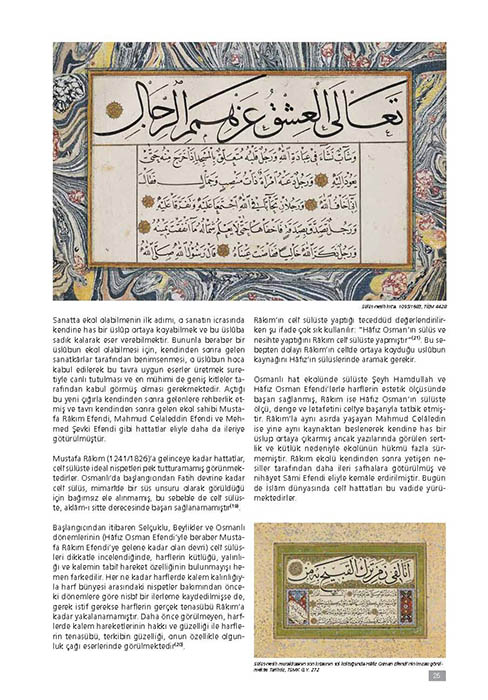 تعالى العشق عن همم الرجال
وشاب نشأ في عبادة الله ورجل قلبه متعلق بالمسجد إذا خرج منه حتى
يعود إليه ورجل دعته امرأة ذات منصب وجمال فقال
إني أخاف الله ورجلان تحابا في الله اجتمعا عليه وتفرقا عليه
ورجل تصدق بصدقة فأخفاها حتى لا تعلم شماله ما تنفق يمينه
ورجل ذكر الله خاليا ففاضت عيناه قال رسول الله صلى الله عليه
Sülüs-nesih kıt'a. 1093/1682, TİEM 4428
Sanatta ekol olabilmenin ilk adımı, o sanatın icrasında
kendine has bir üslûp ortaya koyabilmek ve bu üslûba
sadık kalarak eser verebilmektir. Bununla beraber bir
üslûbun ekol olabilmesi için, kendinden sonra gelen
sanatkârlar tarafından benimsenmesi, o üslûbun hoca
kabul edilerek bu tavra uygun eserler üretmek sure-
tiyle canlı tutulması ve en mühimi de geniş kitleler ta-
rafından kabul görmüş olması gerekmektedir. Açtığı
bu yeni çığırla kendinden sonra gelenlere rehberlik et-
miş ve tavrı kendinden sonra gelen ekol sahibi Musta-
fa Râkım Efendi, Mahmud Celaleddin Efendi ve Meh-
med Şevki Efendi gibi hattatlar eliyle daha da ileriye
götürülmüştür.
Mustafa Râkım (1241/1826)'a gelinceye kadar hattatlar,
celf sülüste ideal nispetleri pek tutturamamış görünmek-
tedirler. Osmanlı'da başlangıcından Fatih devrine kadar
celf sülüs, mimarîde bir süs unsuru olarak görüldüğü
için bağımsız ele alınmamış, bu sebeble de celf sülüs-
te, aklâm-ı sitte derecesinde başarı sağlanamamıştır(19).
Başlangıcından itibaren Selçuklu, Beylikler ve Osmanlı
dönemlerinin (Hâfız Osman Efendi'yle beraber Musta-
fa Râkım Efendi'ye gelene kadar olan devri) celf sülüs-
leri dikkatle incelendiğinde, harflerin kütlüğü, yalınlı-
ğı ve kalemin tabiî hareket özelliğinin bulunmayışı he-
men farkedilir. Her ne kadar harflerde kalem kalınlığıy-
la harf bünyesi arasındaki nispetler bakımından önce-
ki dönemlere göre nisbî bir ilerleme kaydedilmişse de,
gerek istif gerekse harflerin gerçek tenasübü Râkım'a
kadar yakalanamamıştır. Daha önce görülmeyen, harf-
lerde kalem hareketlerinin hakkı ve güzelliği ile harfle-
rin tenasübü, terkibin güzelliği, onun özellikle olgun-
luk çağı eserlerinde görülmektedir(20).
Râkım'ın celf sülüste yaptığı teceddüd değerlendirilir-
ken şu ifade çok sık kullanılır: "Hâfız Osman'ın sülüs ve
nesihte yaptığını Râkım celf sülüste yapmıştır"(21). Bu se-
bepten dolayı Râkım'ın celfde ortaya koyduğu üslûbun
kaynağını Hâfız'ın sülüslerinde aramak gerekir.
Osmanlı hat ekolünde sülüste Şeyh Hamdullah ve
Hâfız Osman Efendi'lerle harflerin estetik ölçüsünde
başarı sağlanmış, Râkım ise Hâfız Osman'ın sülüste
ölçü, denge ve letafetini celfye başarıyla tatbik etmiş-
tir. Râkım'la aynı asırda yaşayan Mahmud Celâledin
ise yine aynı kaynaktan beslenerek kendine has bir
üslup ortaya çıkarmış ancak yazılarında görülen sert-
lik ve kütlük nedeniyle ekolünün hükmü fazla sür-
memiştir. Râkım ekolü kendinden sonra yetişen ne-
siller tarafından daha ileri safhalara götürülmüş ve
nihâyet Sâmi Efendi eliyle kemâle erdirilmiştir. Bugün
de İslam dünyasında celf hattatları bu vadide yürü-
mektedirler.
25